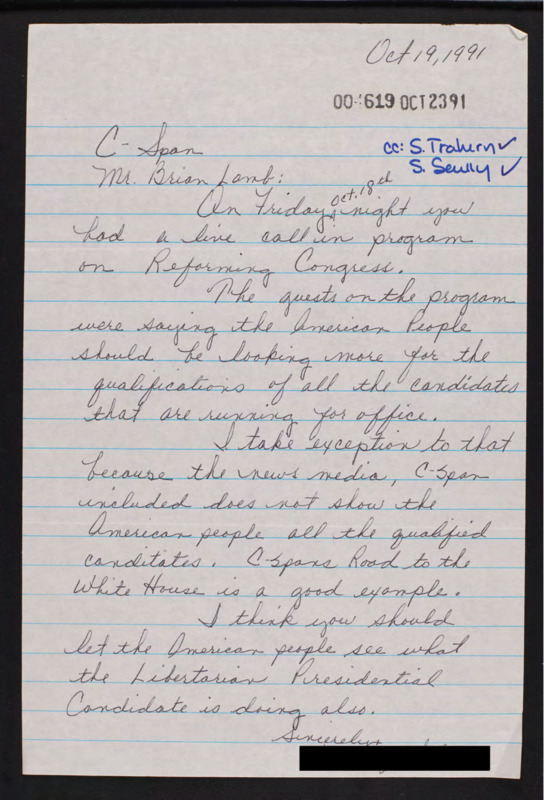 Oct 19, 1991
00-619 OCT 23 91
cc: S. Trahern ✓
S. Scully ✓
C-Span
Mr. Brian Lamb:
On Friday Oct. 18th night you
had a live call in program
on Reforming Congress.
The guests on the program
were saying the American People
should be looking more for the
qualifications of all the candidates
that are running for office.
I take exception to that
because the news media, C-Span
included does not show the
American people all the qualified
canditates. C-Spans Road to the
White House is a good example.
I think you should
let the American people see what
the Libertarian Presidential
Candidate is doing also.
Sincerely,